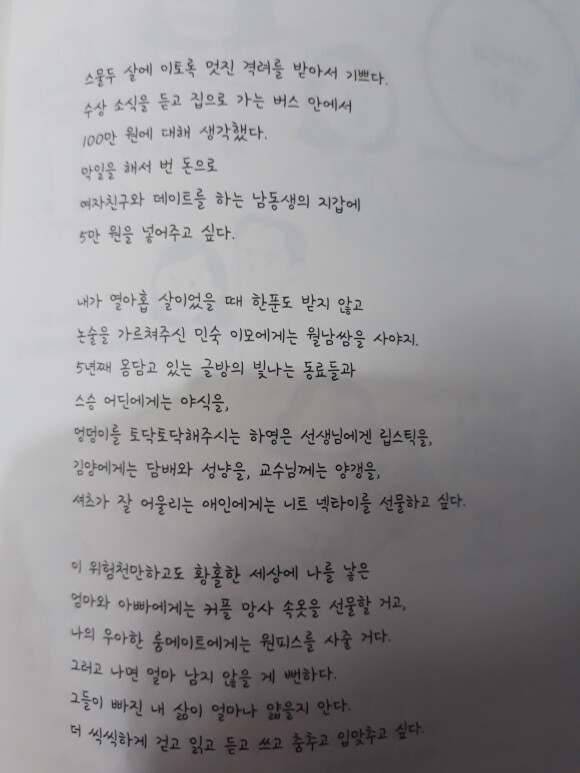 스물두 살에 이토록 멋진 격려를 받아서 기쁘다.
수상 소식을 듣고 집으로 가는 버스 안에서
100만 원에 대해 생각했다.
막일을 해서 번 돈으로
여자친구와 데이트를 하는 남동생의 지갑에
5만 원을 넣어주고 싶다.

내가 열아홉 살이었을 때 한푼도 받지 않고
논술을 가르쳐주신 민숙 이모에게는 월남쌈을 사야지.
5년째 몸담고 있는 글방의 빛나는 동료들과
스승 어딘에게는 야식을,
엉덩이를 토닥토닥해주시는 하영은 선생님에겐 립스틱을,
김양에게는 담배와 성냥을, 교수님께는 양갱을,
셔츠가 잘 어울리는 애인에게는 니트 넥타이를 선물하고 싶다.

이 위험천만하고도 황홀한 세상에 나를 낳은
엄마와 아빠에게는 커플 망사 속옷을 선물할 거고,
나의 우아한 룸메이트에게는 원피스를 사줄 거다.
그러고 나면 얼마 남지 않을 게 뻔하다.
그들이 빠진 내 삶이 얼마나 얇을지 안다.
더 씩씩하게 걷고 읽고 듣고 쓰고 춤추고 입맞추고 싶다.